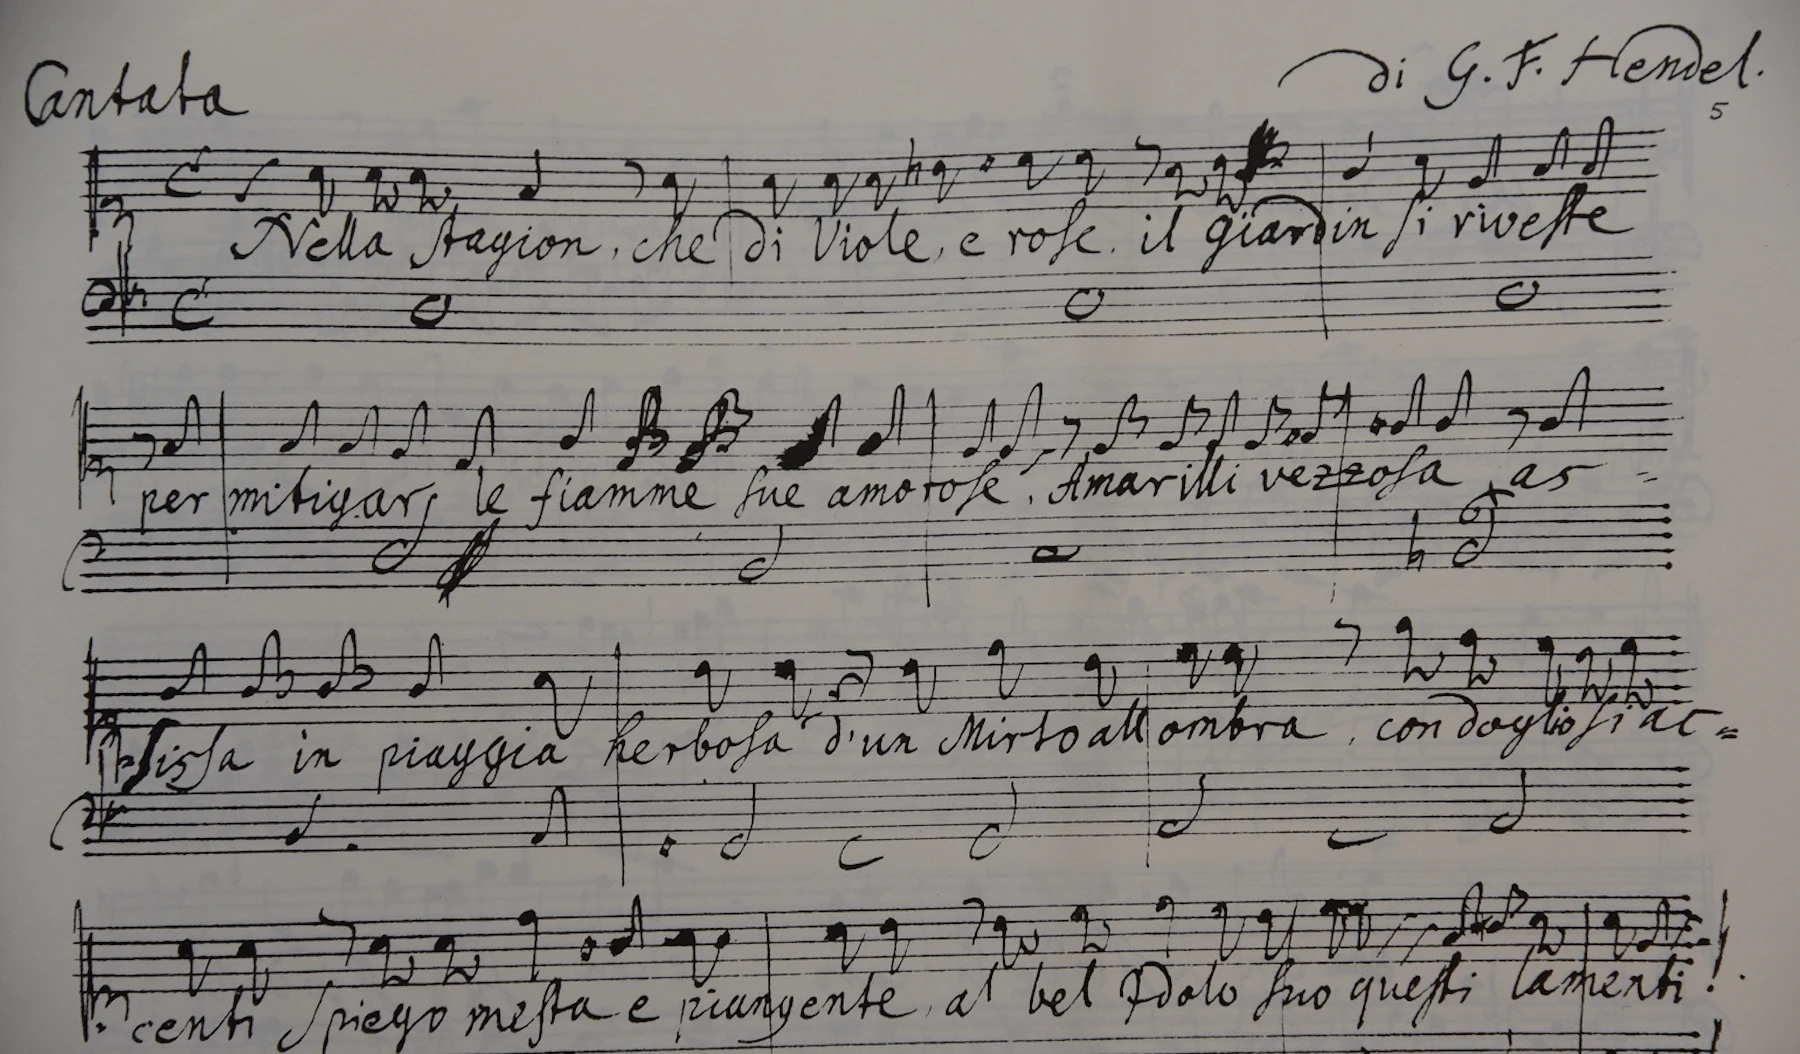 Cantata
di G. F. Hendel.
5
Nella Stagion, che di Viole, e rose. il giardin si riveste
per mitigar le fiamme sue amorose, Amarilli vezzosa as =
sissa in piaggia herbosa d'un Mirto all ombra, con dogliosi ac =
centi Spiego mesta e piangente, al bel Idolo suo questi lamenti!